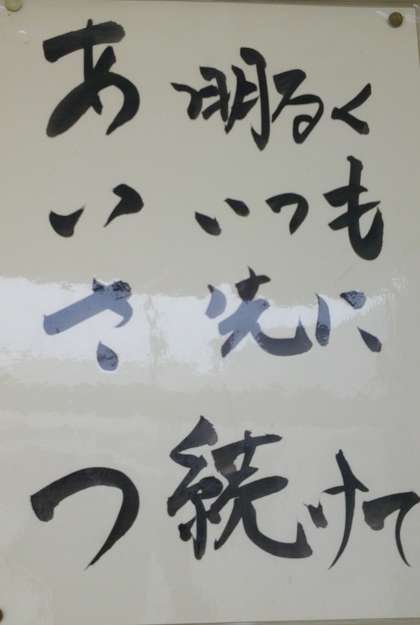 あ 明るく
い いつも
さ 先に
つ 続けて